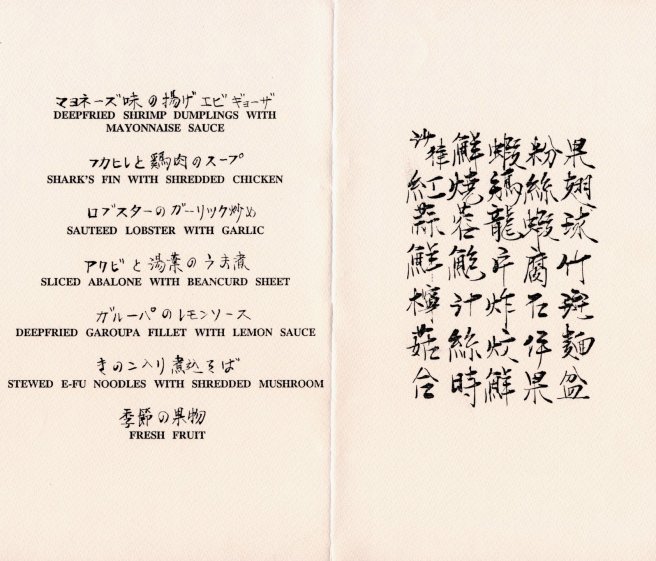 マヨネーズ味の揚げエビギョーザ
DEEPFRIED SHRIMP DUMPLINGS WITH
MAYONNAISE SAUCE
フカヒレと鶏肉のスープ
SHARK'S FIN WITH SHREDDED CHICKEN
ロブスターのガーリック炒め
SAUTEED LOBSTER WITH GARLIC
アワビと湯葉のうま煮
SLICED ABALONE WITH BEANCURD SHEET
ガルーパのレモンソース
DEEPFRIED GAROUPA FILLET WITH LEMON SAUCE
きのこ入り煮込そば
STEWED E-FU NOODLES WITH SHREDDED MUSHROOM
季節の果物
FRESH FRUIT
沙律鮮蝦粉果
紅燒鷄絲翅
蒜蓉龍蝦球
鮮鮑片腐竹
檸汁炸石斑
菇絲炆伊麵
合時鮮果盆